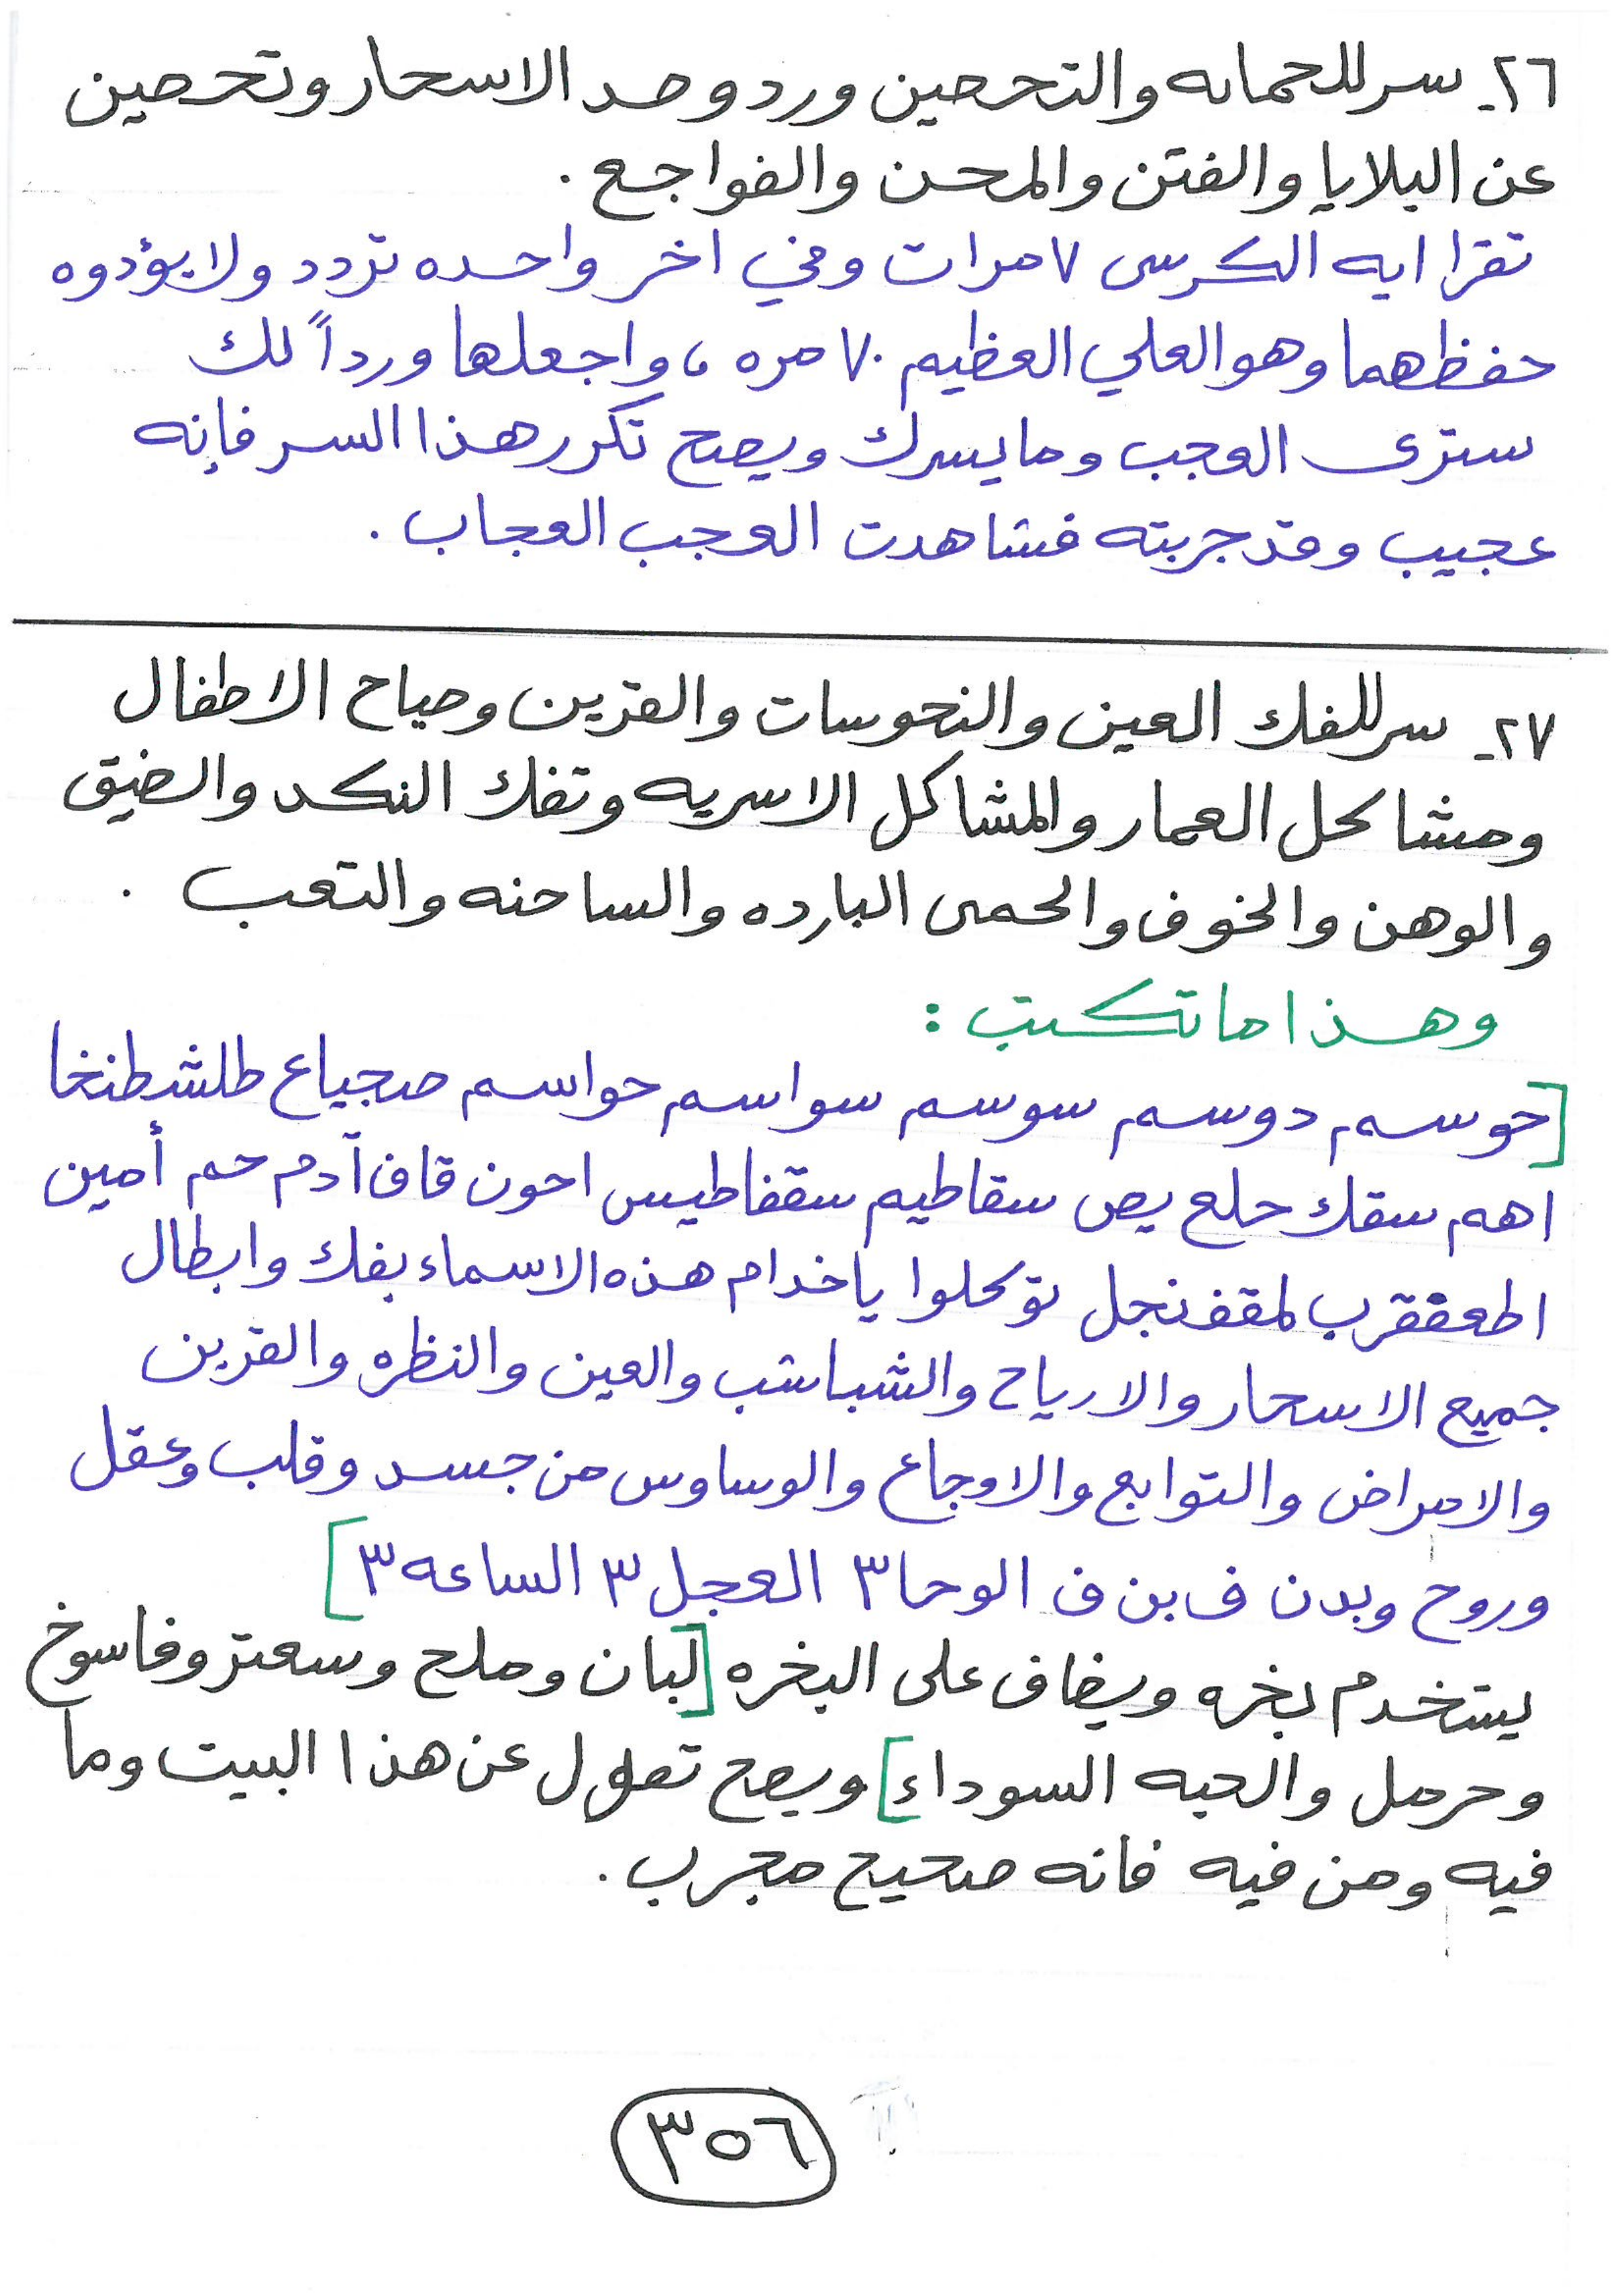 ٢٦- سر للحمايه والتحصين ورد وصد الاسحار وتحصين
عن البلايا والفتن والمحن والفواجع .
تقرا ايه الكرسى ٧ مرات وفي اخر واحده تردد ولا يؤدوه
حفظهما وهو العلي العظيم ٧٠ مره ، واجعلها ورداً لك
سترى العجب وما يسرك ويصح تكرر هذا السر فإنه
عجيب وقد جربته فشاهدت العجب العجاب .
٢٧- سر للفك العين والنحوسات والقرين وصياح الاطفال
ومشاكل العمار والمشاكل الاسريه وتفك النكد والضيق
والوهن والخوف والحمى البارده والساخنه والتعب .
وهذا ما تكتب :
[حوسم دوسم سوسم سواسم حواسم صجياع طلشطنخا
اهم سقك حلع يص سقاطيم سقفاطيس احون قاف آدم حم أمين
اطعققرب لمقفنجل توكلوا يا خدام هذه الاسماء بفك وابطال
جميع الاسحار والارياح والشباشب والعين والنظره والقرين
والامراض والتوابع والاوجاع والوساوس من جسد وقلب وعقل
وروح وبدن ف بن ف الوحا٣ العجل ٣ الساعه ٣]
يستخدم بخره ويضاف على البخره [لبان وملح وسعتر وفاسوخ
وحرمل والحبه السوداء] ويصح تقول عن هذا البيت وما
فيه ومن فيه فانه صحيح مجرب .
٣٥٦